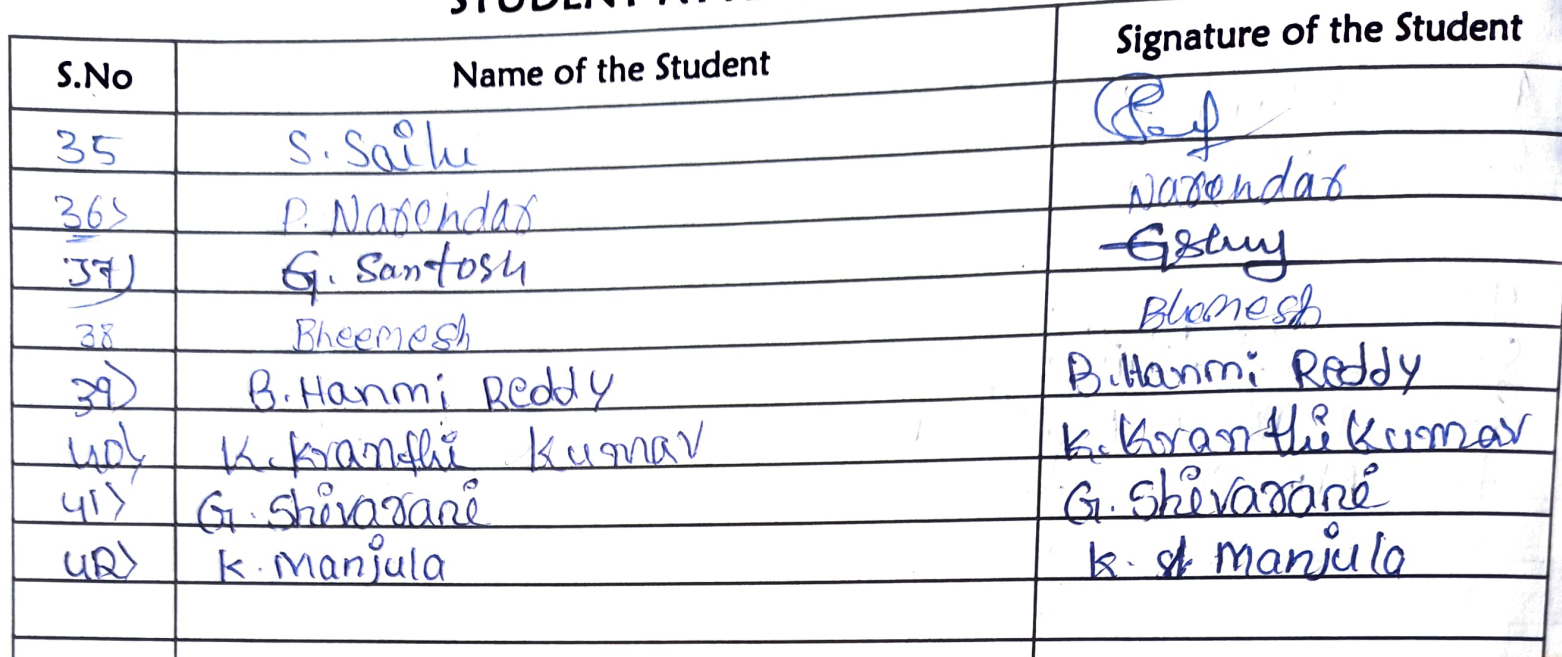 STUDENT
S.No Name of the Student Signature of the Student
35 S. Sailu
36) P. Narendar Narendar
37) G. Santosh
38 Bheemesh Bhomesh
39) B. Hanmi Reddy B. Hanmi Reddy
40) K. Kranthi Kumar K. Kranthi Kumar
41) G. Shivarani G. Shivarani
42) K. Manjula K. Manjula